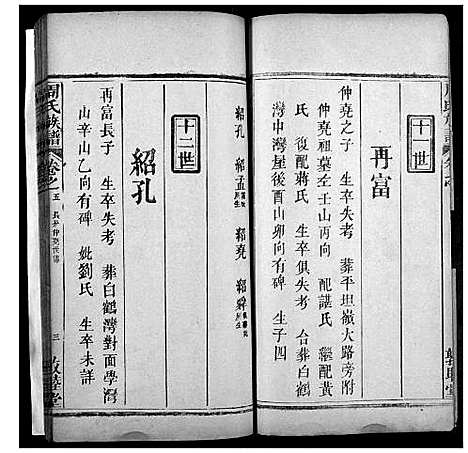 十一世
再富
仲堯之子 生卒失考 葬平坦嶺大路旁附
仲堯祖墓左壬山丙向 配諶氏 繼配黃
氏 復配蔣氏 生卒俱失考 合葬白鶴
灣中灣屋後酉山卯向有碑 生子四
紹孔 紹孟 紹堯 紹舜
十二世
紹孔
再富長子 生卒失考 葬白鶴灣對面學灣
山辛山乙向有碑 妣劉氏 生卒未詳
周氏族譜 卷之五 三